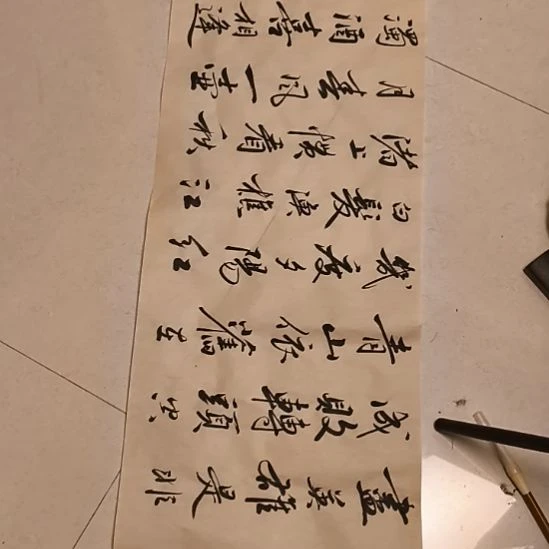 盡英雄是非
成敗轉頭空
青山依舊在
幾度夕陽紅
白髮漁樵江
渚上慣看秋
月春風一壺
濁酒喜相逢